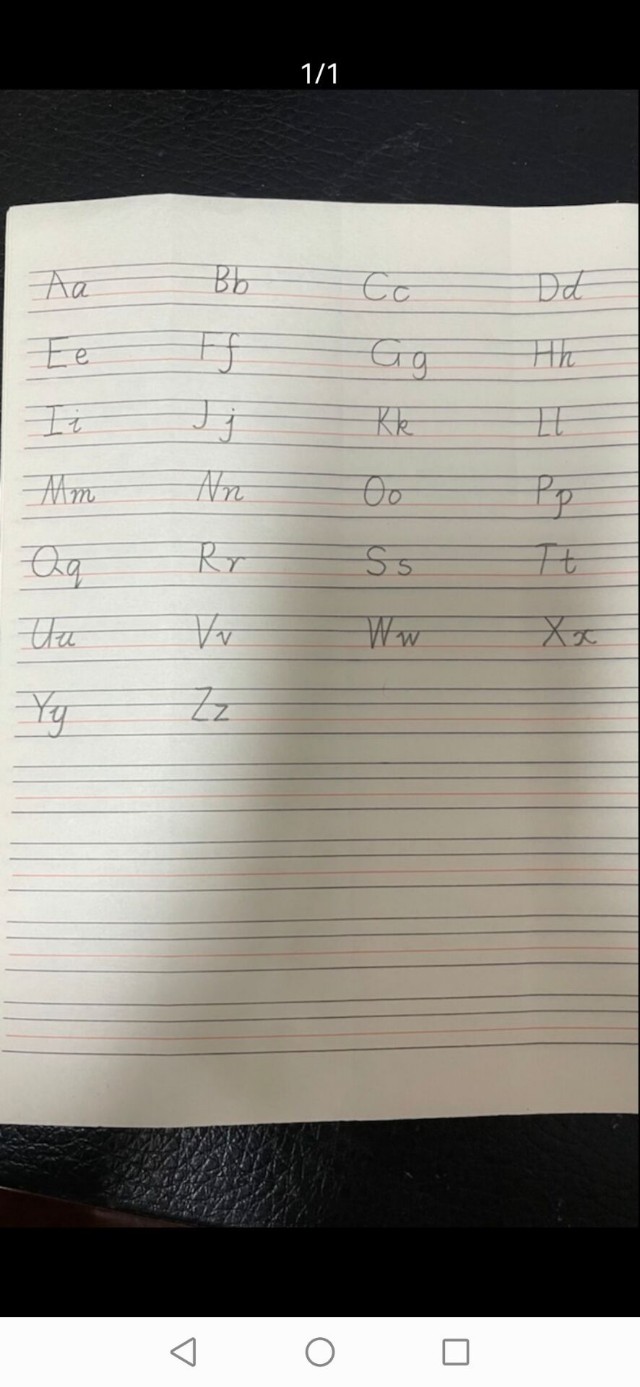 1/1
Aa Bb Cc Dd
Ee Ff Gg Hh
Ii Jj Kk Ll
Mm Nn Oo Pp
Qq Rr Ss Tt
Uu Vv Ww Xx
Yy Zz